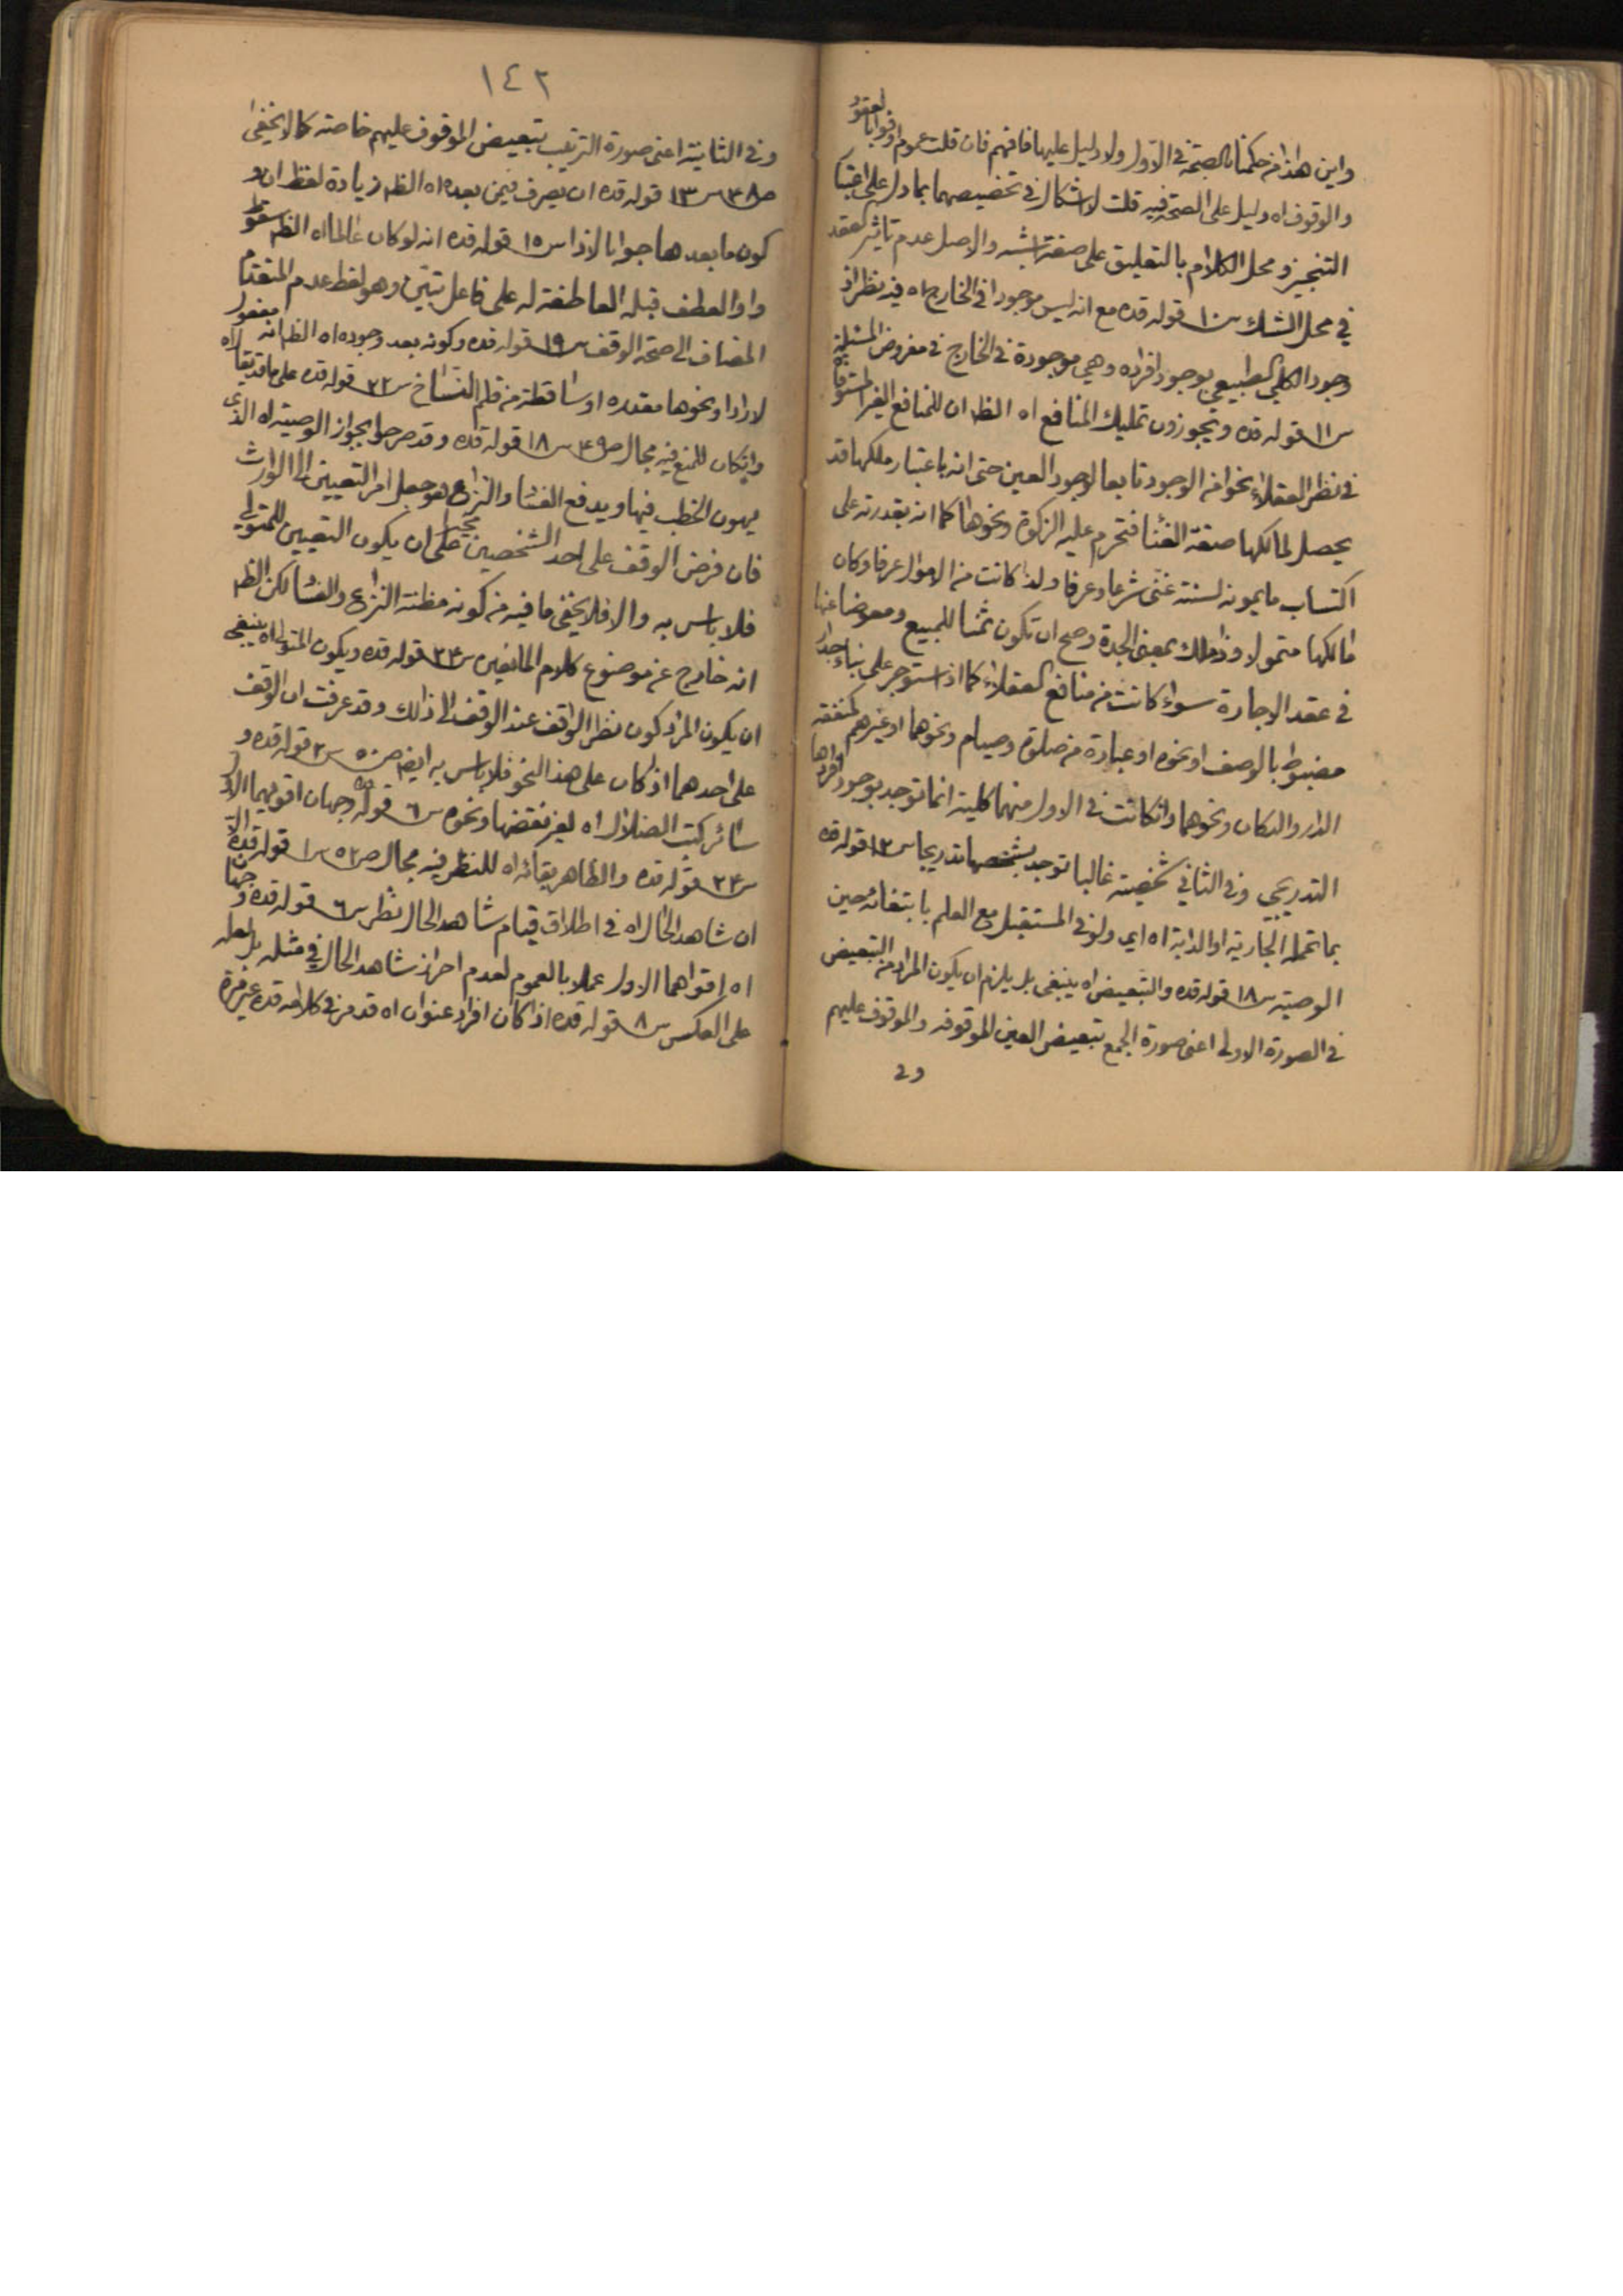 واين هذا من حكمنا بالصحة في الاول ولا دليل عليها فافهم فان قلت عموم اوفوا بالعقود
والوقوف اه دليل على الصحة فيه قلت لا اشكال في تخصيصهما بما دل على اعتبار
التنجيز ومحل الكلام بالتعليق على صفة اشبه والاصل عدم تاثير العقد
في محل الشك س١٠ قوله قده مع انه ليس موجودا في الخارج اه فيه نظر اذ
وجود الكلي الطبيعي بوجود افراده وهي موجودة في الخارج في مفروض المسئلة
س١١ قوله قده ويجوزون تمليك المنافع اه الظ ان للمنافع الغير المستوفاة
في نظر العقلاء نحوا من الوجود تابعا لوجود العين حتى انه باعتبار ملكها قد
يحصل لمالكها صفة الغنا فتحرم عليه الزكوة ونحوها كما انه بقدرته على
اكتساب مايمونه لسنته غنى شرعا وعرفا ولذا كانت من الاموال عرفا وكان
مالكها متمولا وذا ملك بمعنى الجدة وصح ان تكون ثمنا للمبيع ومعوضا عنها
في عقد الاجارة سواء كانت من منافع العقلاء كما اذا ستوجر على بناء جدار
مضبوط بالوصف او نحوه او عبادة من صلوة وصيام ونحوهما او غيرهم كمنفعة
الدار والدكان ونحوهما وانكانت في الاول منهما كلية انما توجد بوجود افرادها
التدريجي وفي الثاني شخصية غالبا توجد بشخصها تدريجا س١٢ قوله قده
بما تحمله الجارية او الدابة اه اي ولو في المستقبل مع العلم بانتفائه حين
الوصية س١٨ قوله قده والتبعيض اه ينبغي بل يلزم ان يكون المراد من التبعيض
في الصورة الاولى اعنى صورة الجمع تبعيض العين الموقوفه والموقوف عليهم
وفي
١٤٢
وفي الثانية اعنى صورة الترتيب تبعيض الموقوف عليهم خاصة كما لا يخفى
ص٣٨ س١٣ قوله قده ان يصرف فيمن بعده اه الظ زيادة لفظ ان و
كون ما بعدها جوابا لاذا س١٥ قوله قده انه لو كان عالما اه الظ سقوط
واو العطف قبله العاطفة له على فاعل تبين وهو لفظ عدم المتقدم
المضاف الى صحة الوقف س١٩ قوله قده وكونه بعد وجوده اه الظ انه مفعول
لاراد او نحوها مقدره او ساقطة من قلم النساخ س٢٢ قوله قده على ما قد يقال اه
وانكان للمنع فيه مجال ص٤٩ س١٨ قوله قده وقد صرحوا بجواز الوصية اه الذى
يهون الخطب فيها ويدفع الفساد والنزاع هو جعل امر التعيين الى الوارث
فان فرض الوقف على احد الشخصين على ان يكون التعيين للمتولى
فلا باس به والا فلا يخفى ما فيه من كونه مظنة النزاع والفساد لكن الظ
انه خارج عن موضوع كلام المانعين س٢٤ قوله قده ويكون المتولى اه ينبغى
ان يكون المراد كون نظر الواقف عند الوقف الى ذالك وقد عرفت ان الوقف
على احدهما اذا كان على هذا النحو فلا باس به ايضا ص٥٠ س٢ قوله قده و
سائر كتب الضلال اه لغير نقضها ونحوه س٦ قوله قده وجهان اقويهما الاول
س٢٤ قوله قده والظاهر بقائه اه للنظر فيه مجال ص٥٢ س١ قوله قده الا
ان شاهد الحال اه في اطلاق قيام شاهد الحال نظر س٦ قوله قده وجهان
اه اقواهما الاول عملا بالعموم لعدم احراز شاهد الحال في مثله بل لعله
على العكس س٨ قوله قده اذا كان افراد عنوان اه قد مر في كلامه قده غير مرة